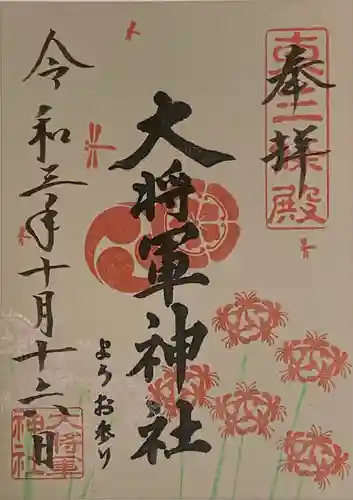 奉拝
東三條殿
大将軍神社
ようお参り
令和三年十月十六日
大将軍
神社